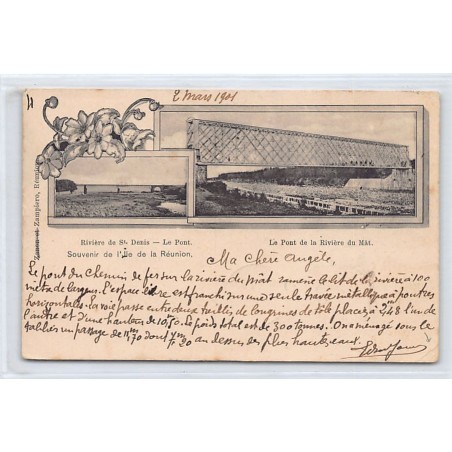 2 Mars 1901
Rivière de St. Denis — Le Pont.
Le Pont de la Rivière du Mât.
Souvenir de l'Île de la Réunion,
Ma Chère Angèle,
Le pont du Chemin de fer sur la rivière du Mât ramène le lit de la rivière à 100
mètres de largeur. l'espace libre est franchi sur une seule travée métallique à poutres
horizontales. La voie passe entre deux treillis de longrines de tôle placés à 2,48 l'un de
l'autre et d'une hauteur de 10,50. Le poids total est de 300 tonnes. On a ménagé sous le
tablier un passage de 70 dont 1m20 au dessus des plus hautes eaux.
Zanon et Zampiero, Réunion